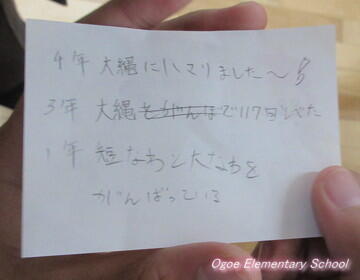 4年 大縄にハマりました〜
3年 大縄をがんばで117回とべた
1年 短なわと大なわを
がんばっている
Ogoe Elementary School